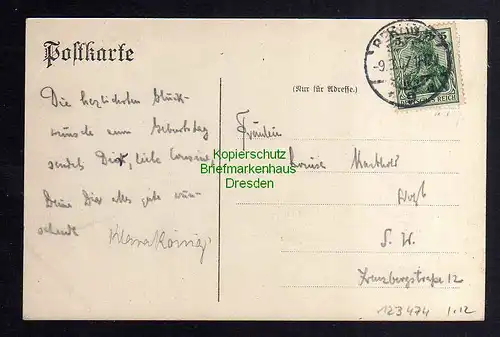 Postkarte
(Nur für Adresse.)
DEUTSCHES REICH
Die herzlichsten Glück-
wünsche zum Geburtstag
sendet Dir, liebe Cousine,
Deine Dir alles gute wün-
schende
Klara König
Fräulein
Louise
S. W.
Kreuzbergstraße 12
Kopierschutz
Briefmarkenhaus
Dresden
123474 1.12